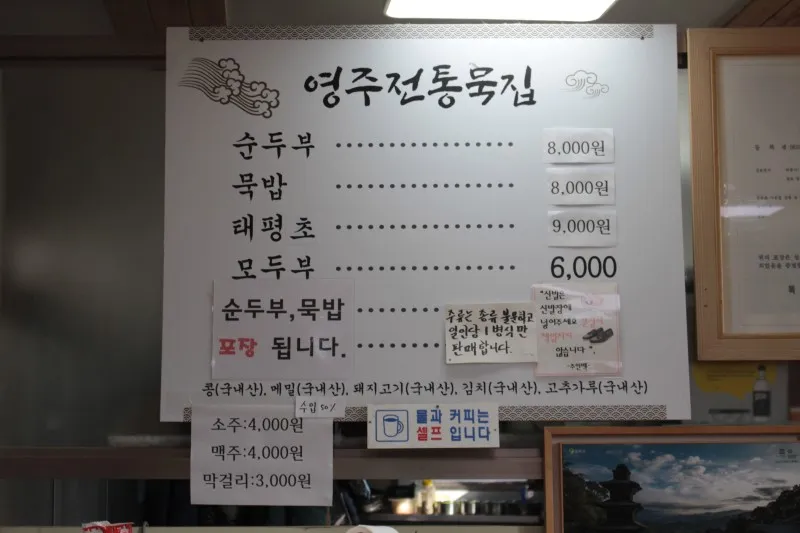 영주전통묵집
순두부 8,000원
묵밥 8,000원
태평초 9,000원
모두부 6,000
순두부,묵밥
포장 됩니다.
주류는 종류 불문하고
일인당 1병씩만
판매합니다.
"신발은
신발장에
넣어주세요
않습니다".
콩(국내산), 메밀(국내산), 돼지고기(국내산), 김치(국내산), 고추가루(국내산)
수입 50%
소주:4,000원
맥주:4,000원
막걸리:3,000원
물과 커피는
셀프 입니다